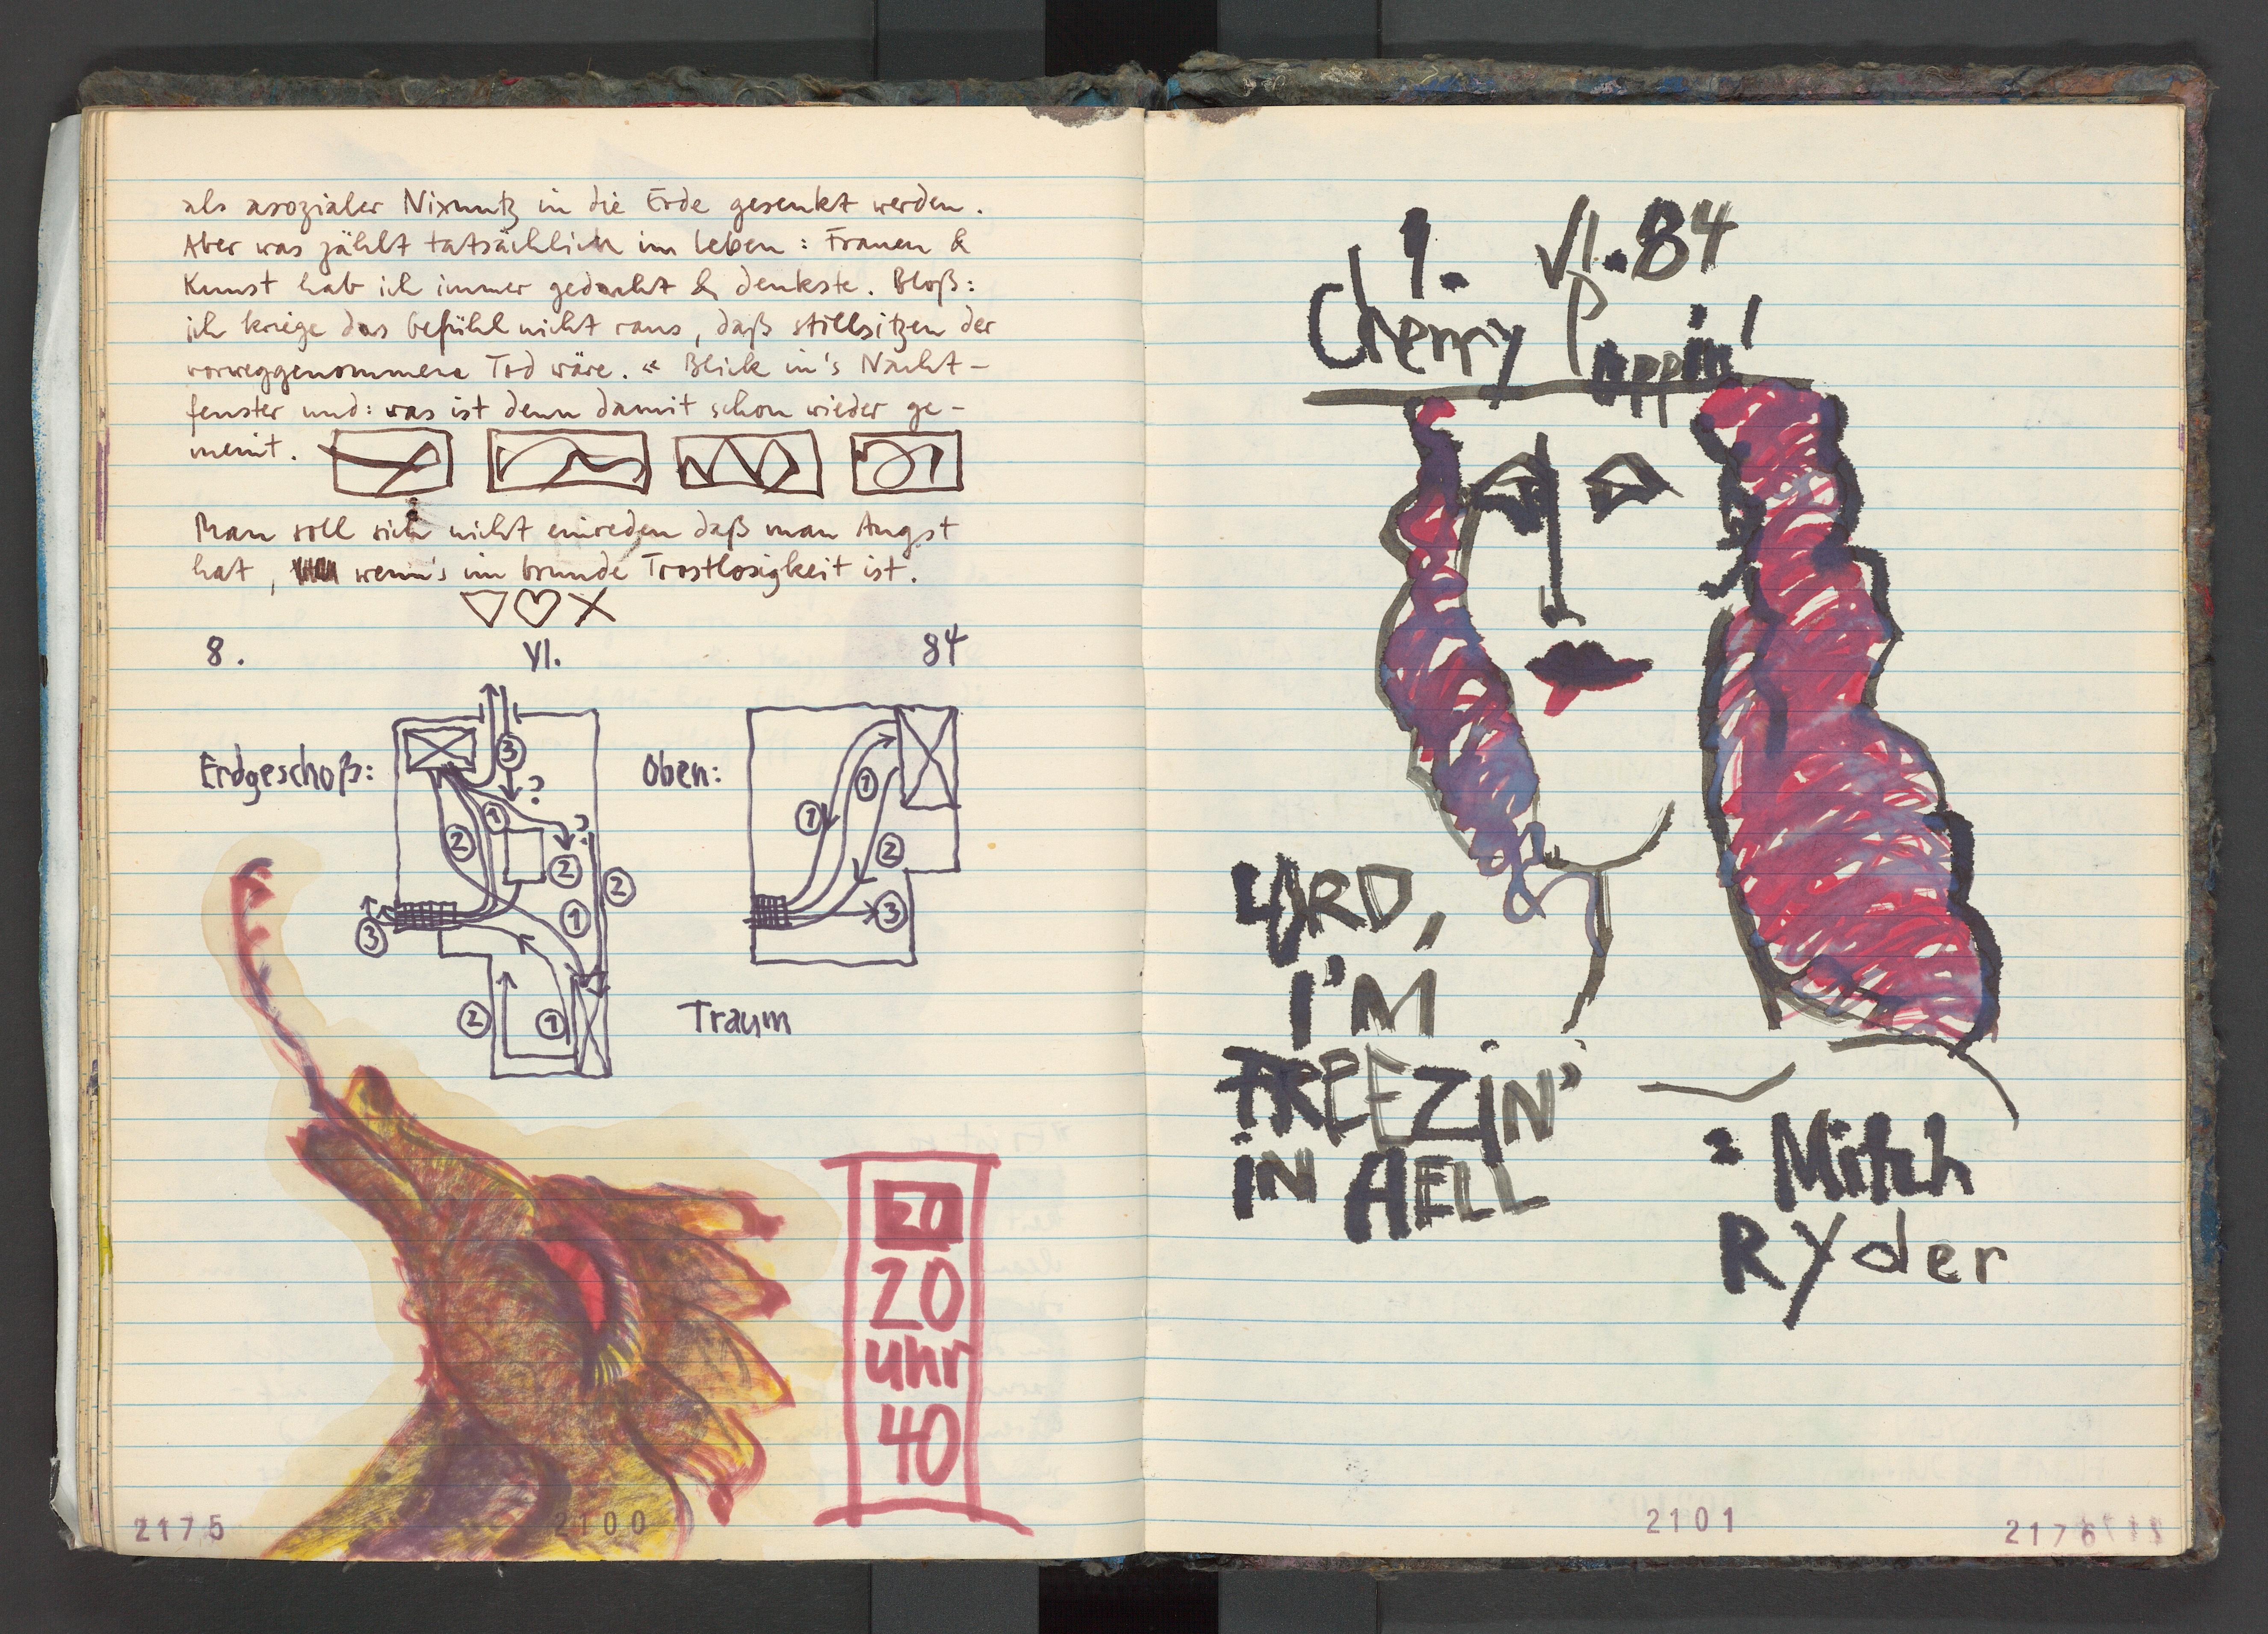 als asozialer Nixnutz in die Erde gesenkt werden.
Aber was zählt tatsächlich im Leben: Frauen &
Kunst hab ich immer gedacht & denkste. Bloß:
ich kriege das Gefühl nicht raus, daß stillsitzen der
vorweggenommene Tod wäre. « Blick in's Nacht-
fenster und: was ist denn damit schon wieder ge-
meint.
Man soll sich nicht einreden daß man Angst
hat, wenn's im Grunde Trostlosigkeit ist.
8. VI. 84
Erdgeschoß:
3
?
1
2
?
2
2
1
3
2
1
Oben:
1
1
2
3
Traum
20
20
uhr
40
2175
2100
9. VI. 84
Cherry Poppin'
LORD,
I'M
FREEZIN'
IN HELL
: Mitch
Ryder
2101
2176